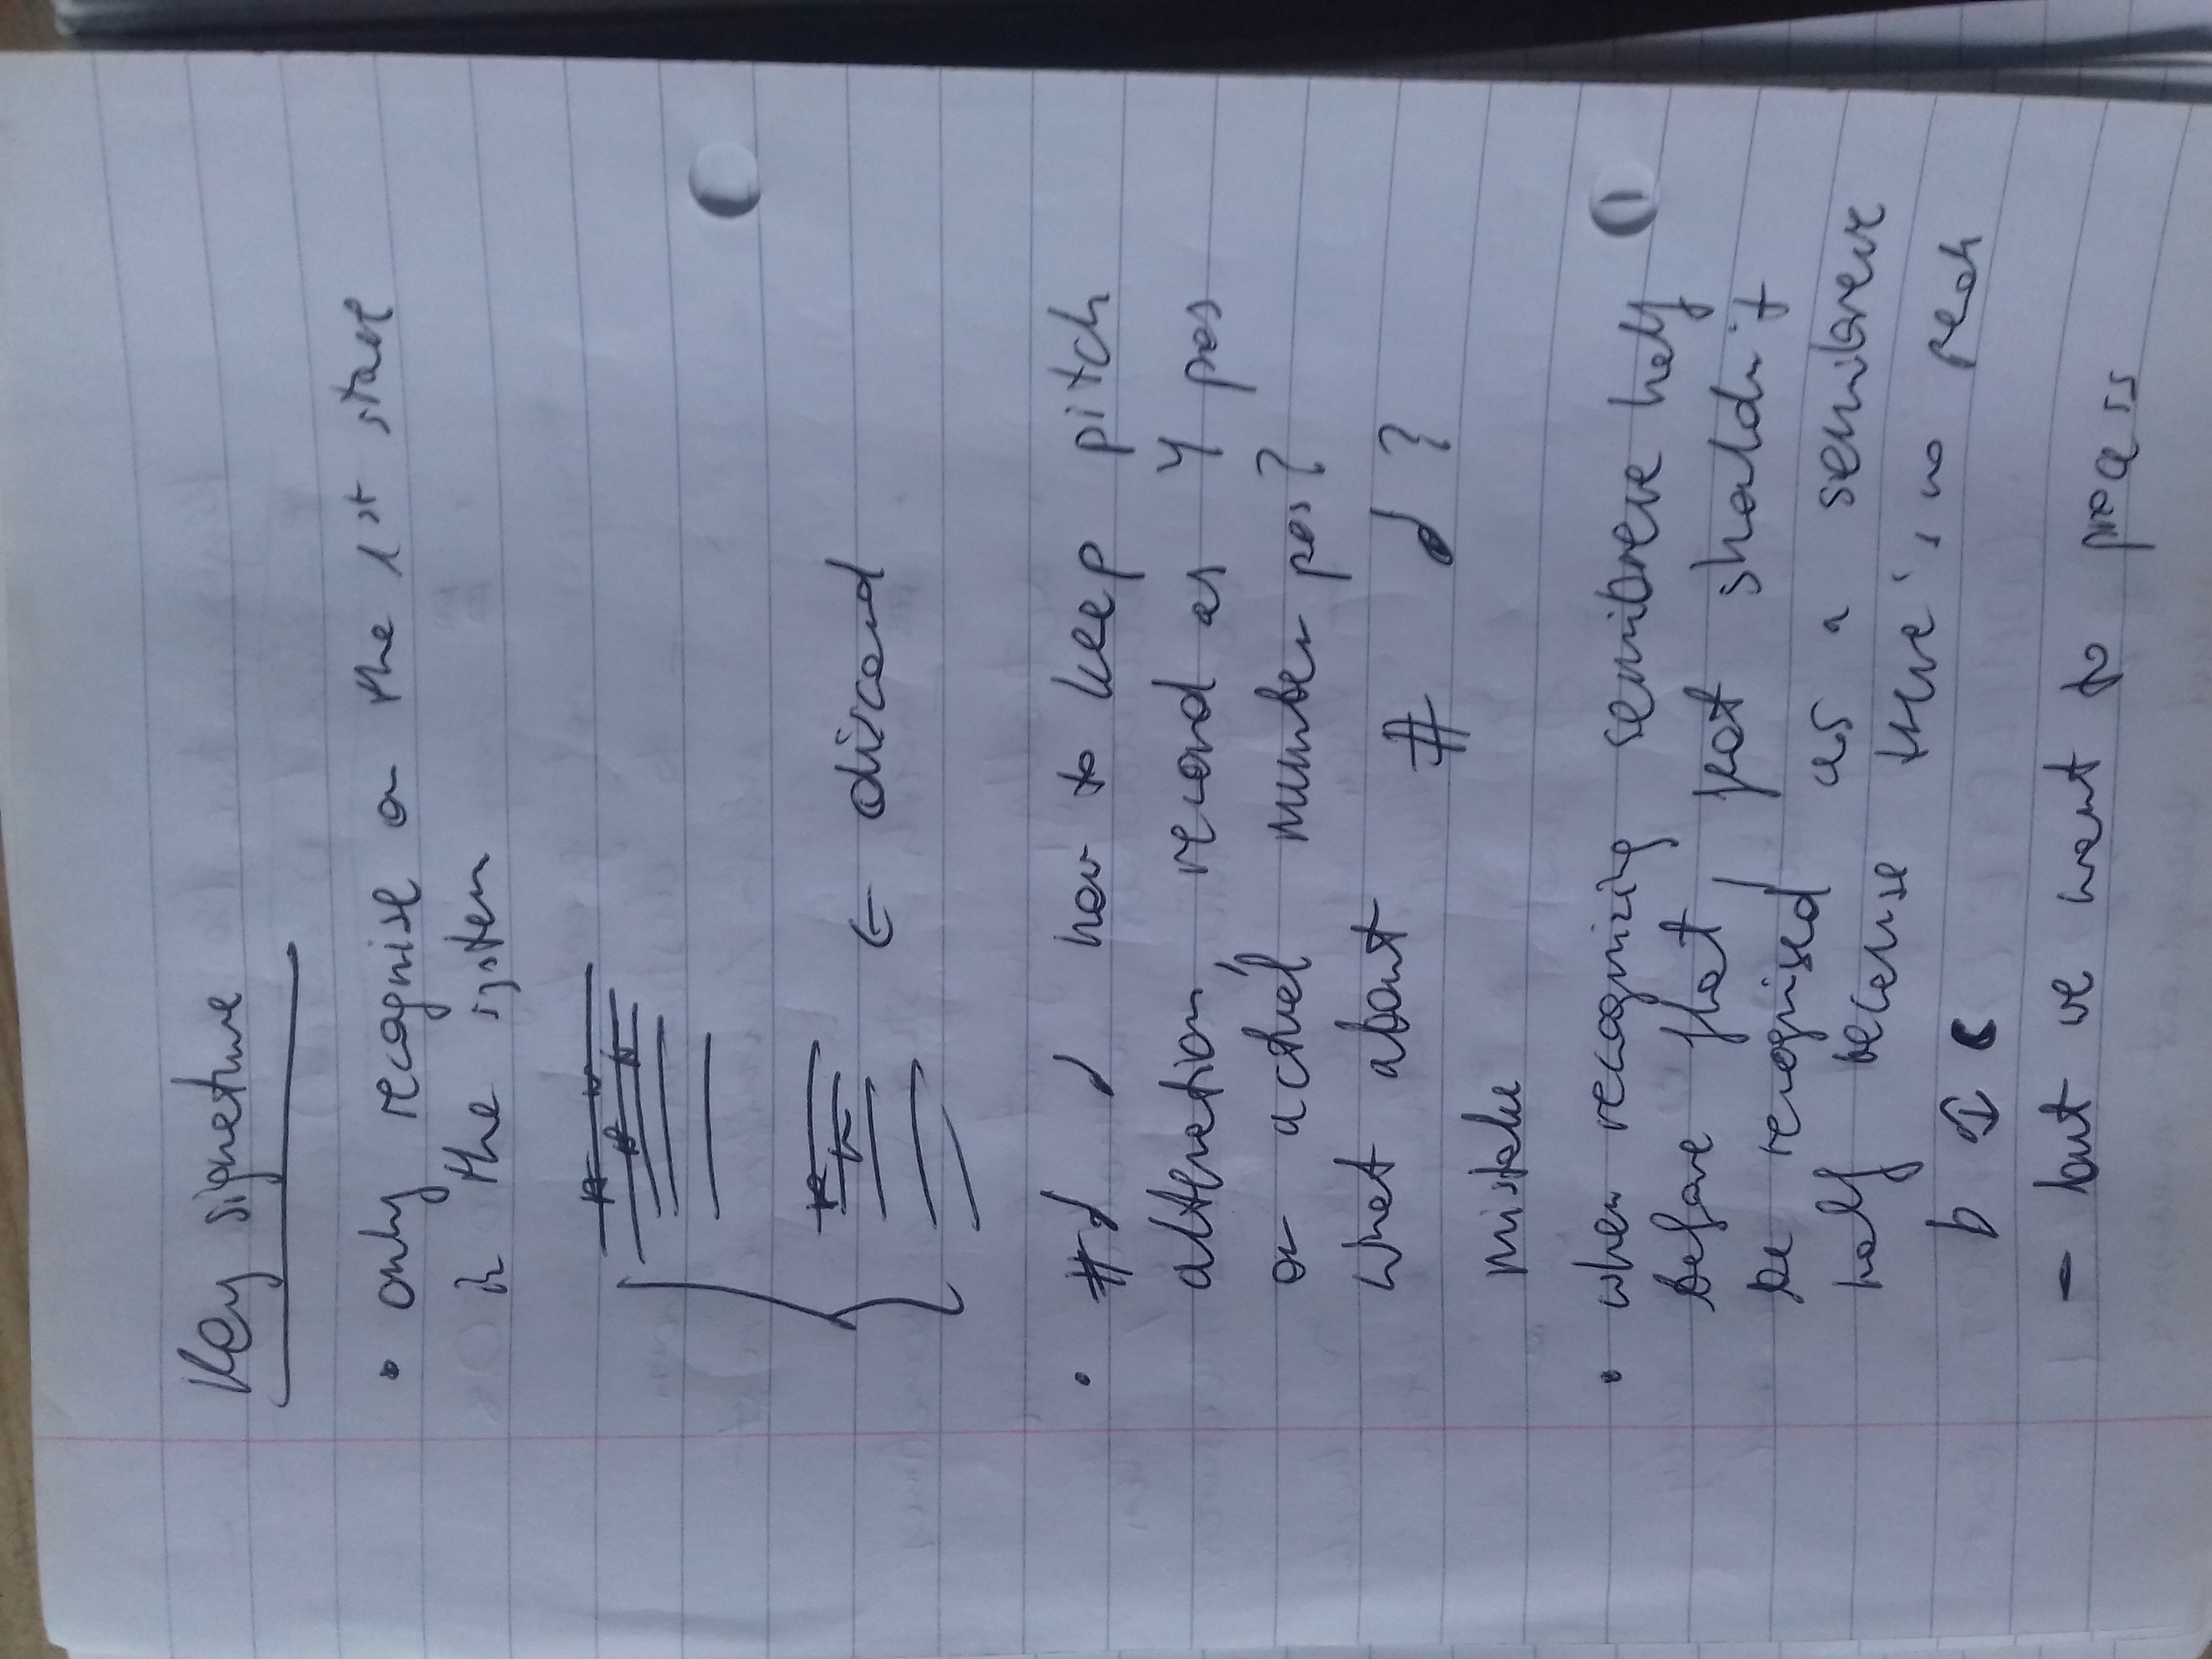 Key signature
• only recognise on the 1st stave
in the system
← discard
• #♩ ♩ how to keep pitch
alteration, record as Y pos
or actual number pos?
what about # ♩ ?
mistake
• when recognizing semibreve half
before flat, flat shouldn't
be recognised as a semibreve
half because there's no peak
b
- but we want to process